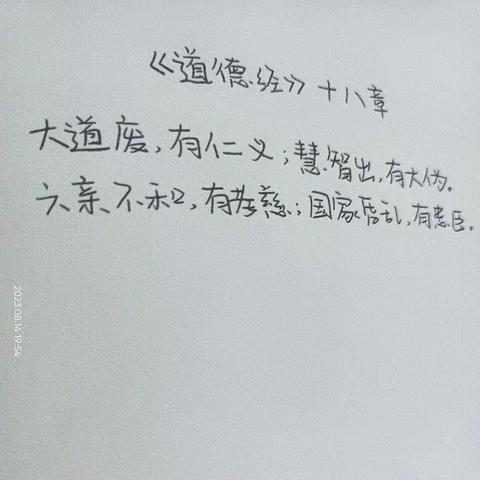 《道德经》十八章
大道废,有仁义;慧智出,有大伪。
六亲不和,有孝慈;国家昏乱,有忠臣。
2023.08.14 19:54